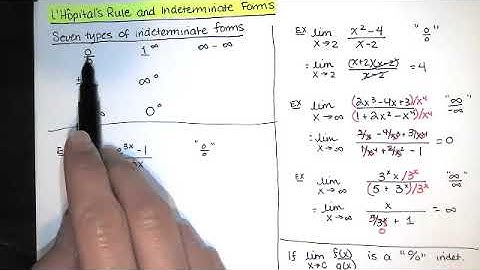 L'Hôpital's Rule and Indeterminate Forms
Seven types of indeterminate forms
0 1^∞ ∞ - ∞
± ∞°
0°
3x - 1 "0/0"
Ex lim x→2 x²-4 / x-2 "0/0"
= lim x→2 (x+2)(x-2) / x-2 = 4
Ex lim x→∞ (2x³-4x+3)/x⁴ / (1+2x²-x⁴)/x⁴ "∞/-∞"
= lim x→∞ 2/x - 4/x³ + 3/x⁴ / 1/x⁴ + 2/x² - 1 = 0
Ex lim x→∞ 3^x x/3^x / (5+3^x)/3^x "∞/∞"
= lim x→∞ x / 5/3^x + 1 = ∞
0
If lim x→c f(x)/g(x) is a "0/0" indet.